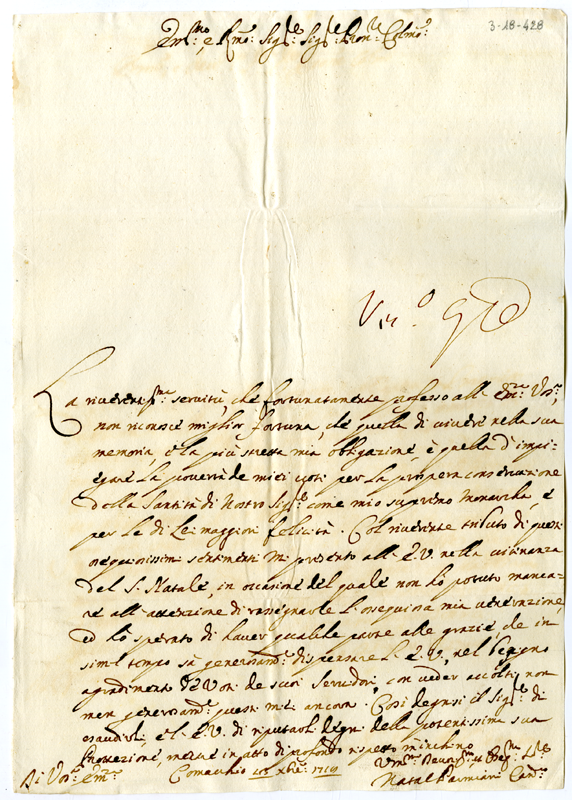 3-18-428
Em.mo e R.mo Sig.re Sig.re Pron.e Col.mo
La riverent.ma servitù, che fortunatamente professo all' Em.za Vos.a,
non riconosce miglior fortuna, che quella di vivere nella sua
memoria, e la più stretta mia obbligazione, è quella d'impi-
egare la povertà de miei voti per la prospera conservazione
della Santità di Nostro Sig.re come mio supremo Monarcha, e
per le di Lei maggiori felicità. Col riverente tributo di questi
ossequiosissimi sentimenti mi presento all' E.V. nella vicinanza
del S. Natale, in occasione del quale non ho potuto manca-
re all' attenzione di rassegnarle l'ossequiosa mia venerazione,
ed ho sperato di haver qualche parte alle grazie, che in
simil tempo sà generosam.e dispensare l'E.V., nel benigno
agradimento de Voti de suoi Servidori, con veder accolti non
men generosam.e questi miei ancora. Così degnisi il Sig.re di
esaudirli, e l'E.V. di riputarli degni della potentissima sua
Protezione, mentre in atto di profondo rispetto m'inchino
Di Vos.a Em.za
Comacchio xbre 1719